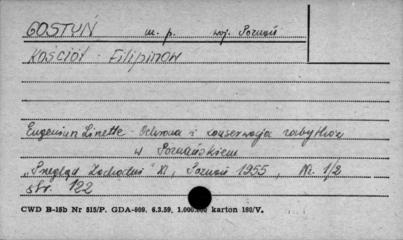 GOSTYŃ m. p. woj. Poznań
KOŚCIÓŁ - FILIPINÓW
Eugeniusz Linette - Ochrona i konserwacja zabytków
w Poznańskiem
„Przegląd Zachodni" XI, Poznań 1955, Nr. 1/2
str. 122
CWD B-15b Nr 515/P. GDA-809. 6.3.59, 1.000.000 karton 180/V.